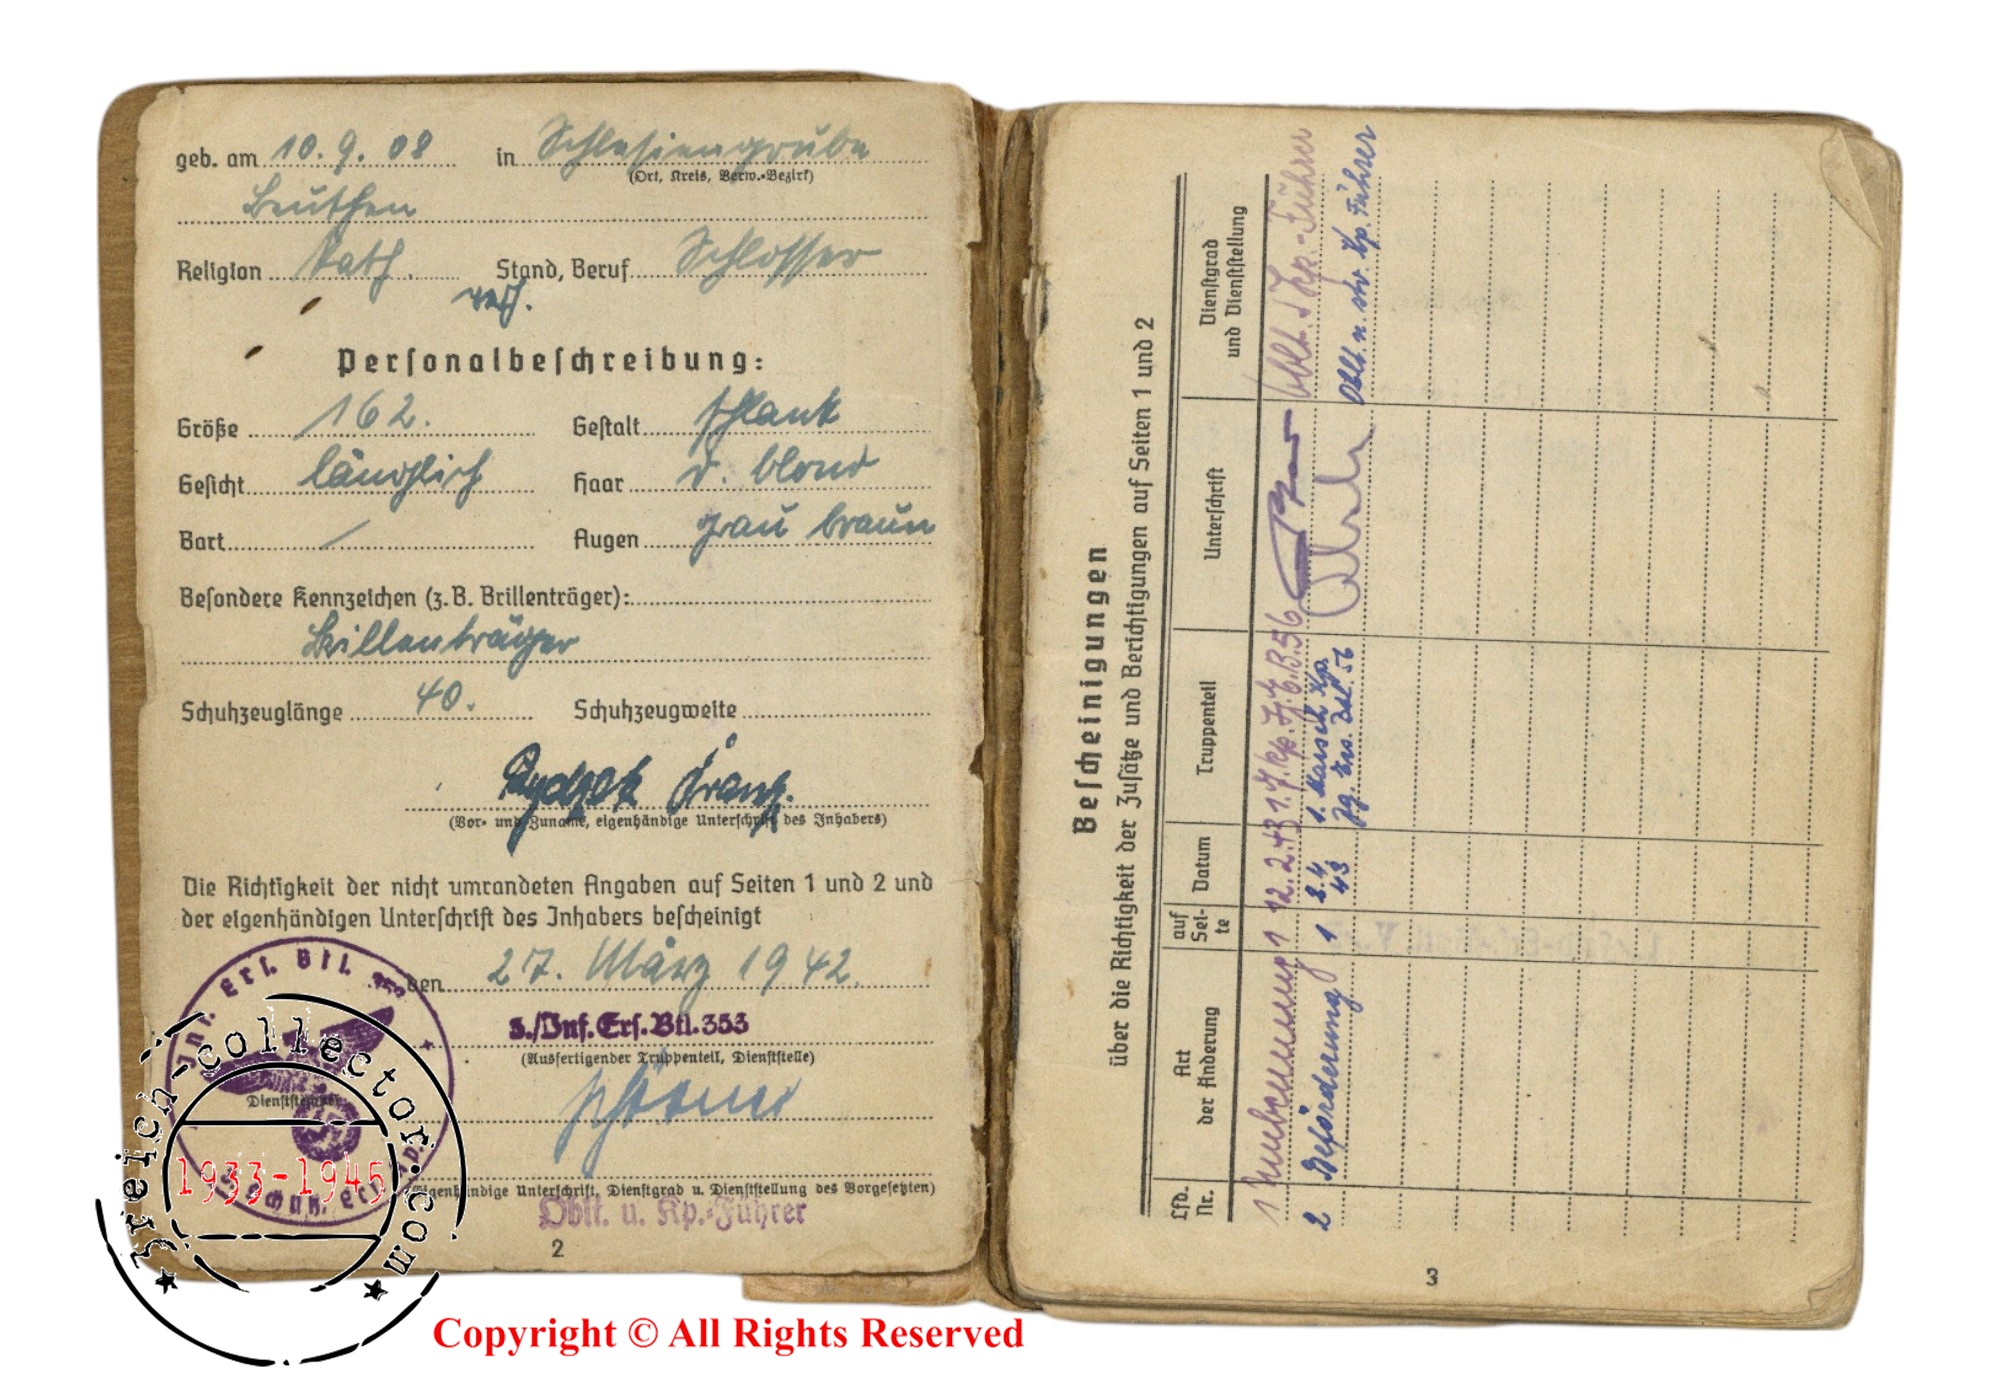 geb. am 10. 9. 08 in Schlesiengrube
(Ort, Kreis, Verw.-Bezirk)
Beuthen
Religion Kath. Stand, Beruf Schlosser
verh.
Personalbeschreibung:
Größe 162. Gestalt schlank
Gesicht länglich Haar d. blond
Bart / Augen grau braun
Besondere Kennzeichen (z.B. Brillenträger):
Brillenträger
Schuhzeuglänge 40. Schuhzeugweite
Franz.
(Vor- und Zuname, eigenhändige Unterschrift des Inhabers)
Die Richtigkeit der nicht umrandeten Angaben auf Seiten 1 und 2 und
der eigenhändigen Unterschrift des Inhabers bescheinigt
den 27. März 1942.
5./Inf.Ers.Btl.353
(Ausfertigender Truppenteil, Dienststelle)
Inf. Ers. Btl. 353
Dienststempel
(Eigenhändige Unterschrift, Dienstgrad u. Dienststellung des Vorgesetzten)
Oblt. u. Kp.-Führer
2
Bescheinigungen
über die Richtigkeit der Zusätze und Berichtigungen auf Seiten 1 und 2
Lfd. Nr. Art der Änderung auf Sei-te Datum Truppenteil Unterschrift Dienstgrad und Dienststellung
1 Neubenennung 1 12.2.43 1. J. E. B. 56 Oblt. u. Kp.-Führer
2 Beförderung 1 8.4 43 1. Marsch Kp. Jg. Ers. Btl. 56 Oblt. u. stv. Kp. Führer
3
reich-collector.com
1933-1945
Copyright © All Rights Reserved